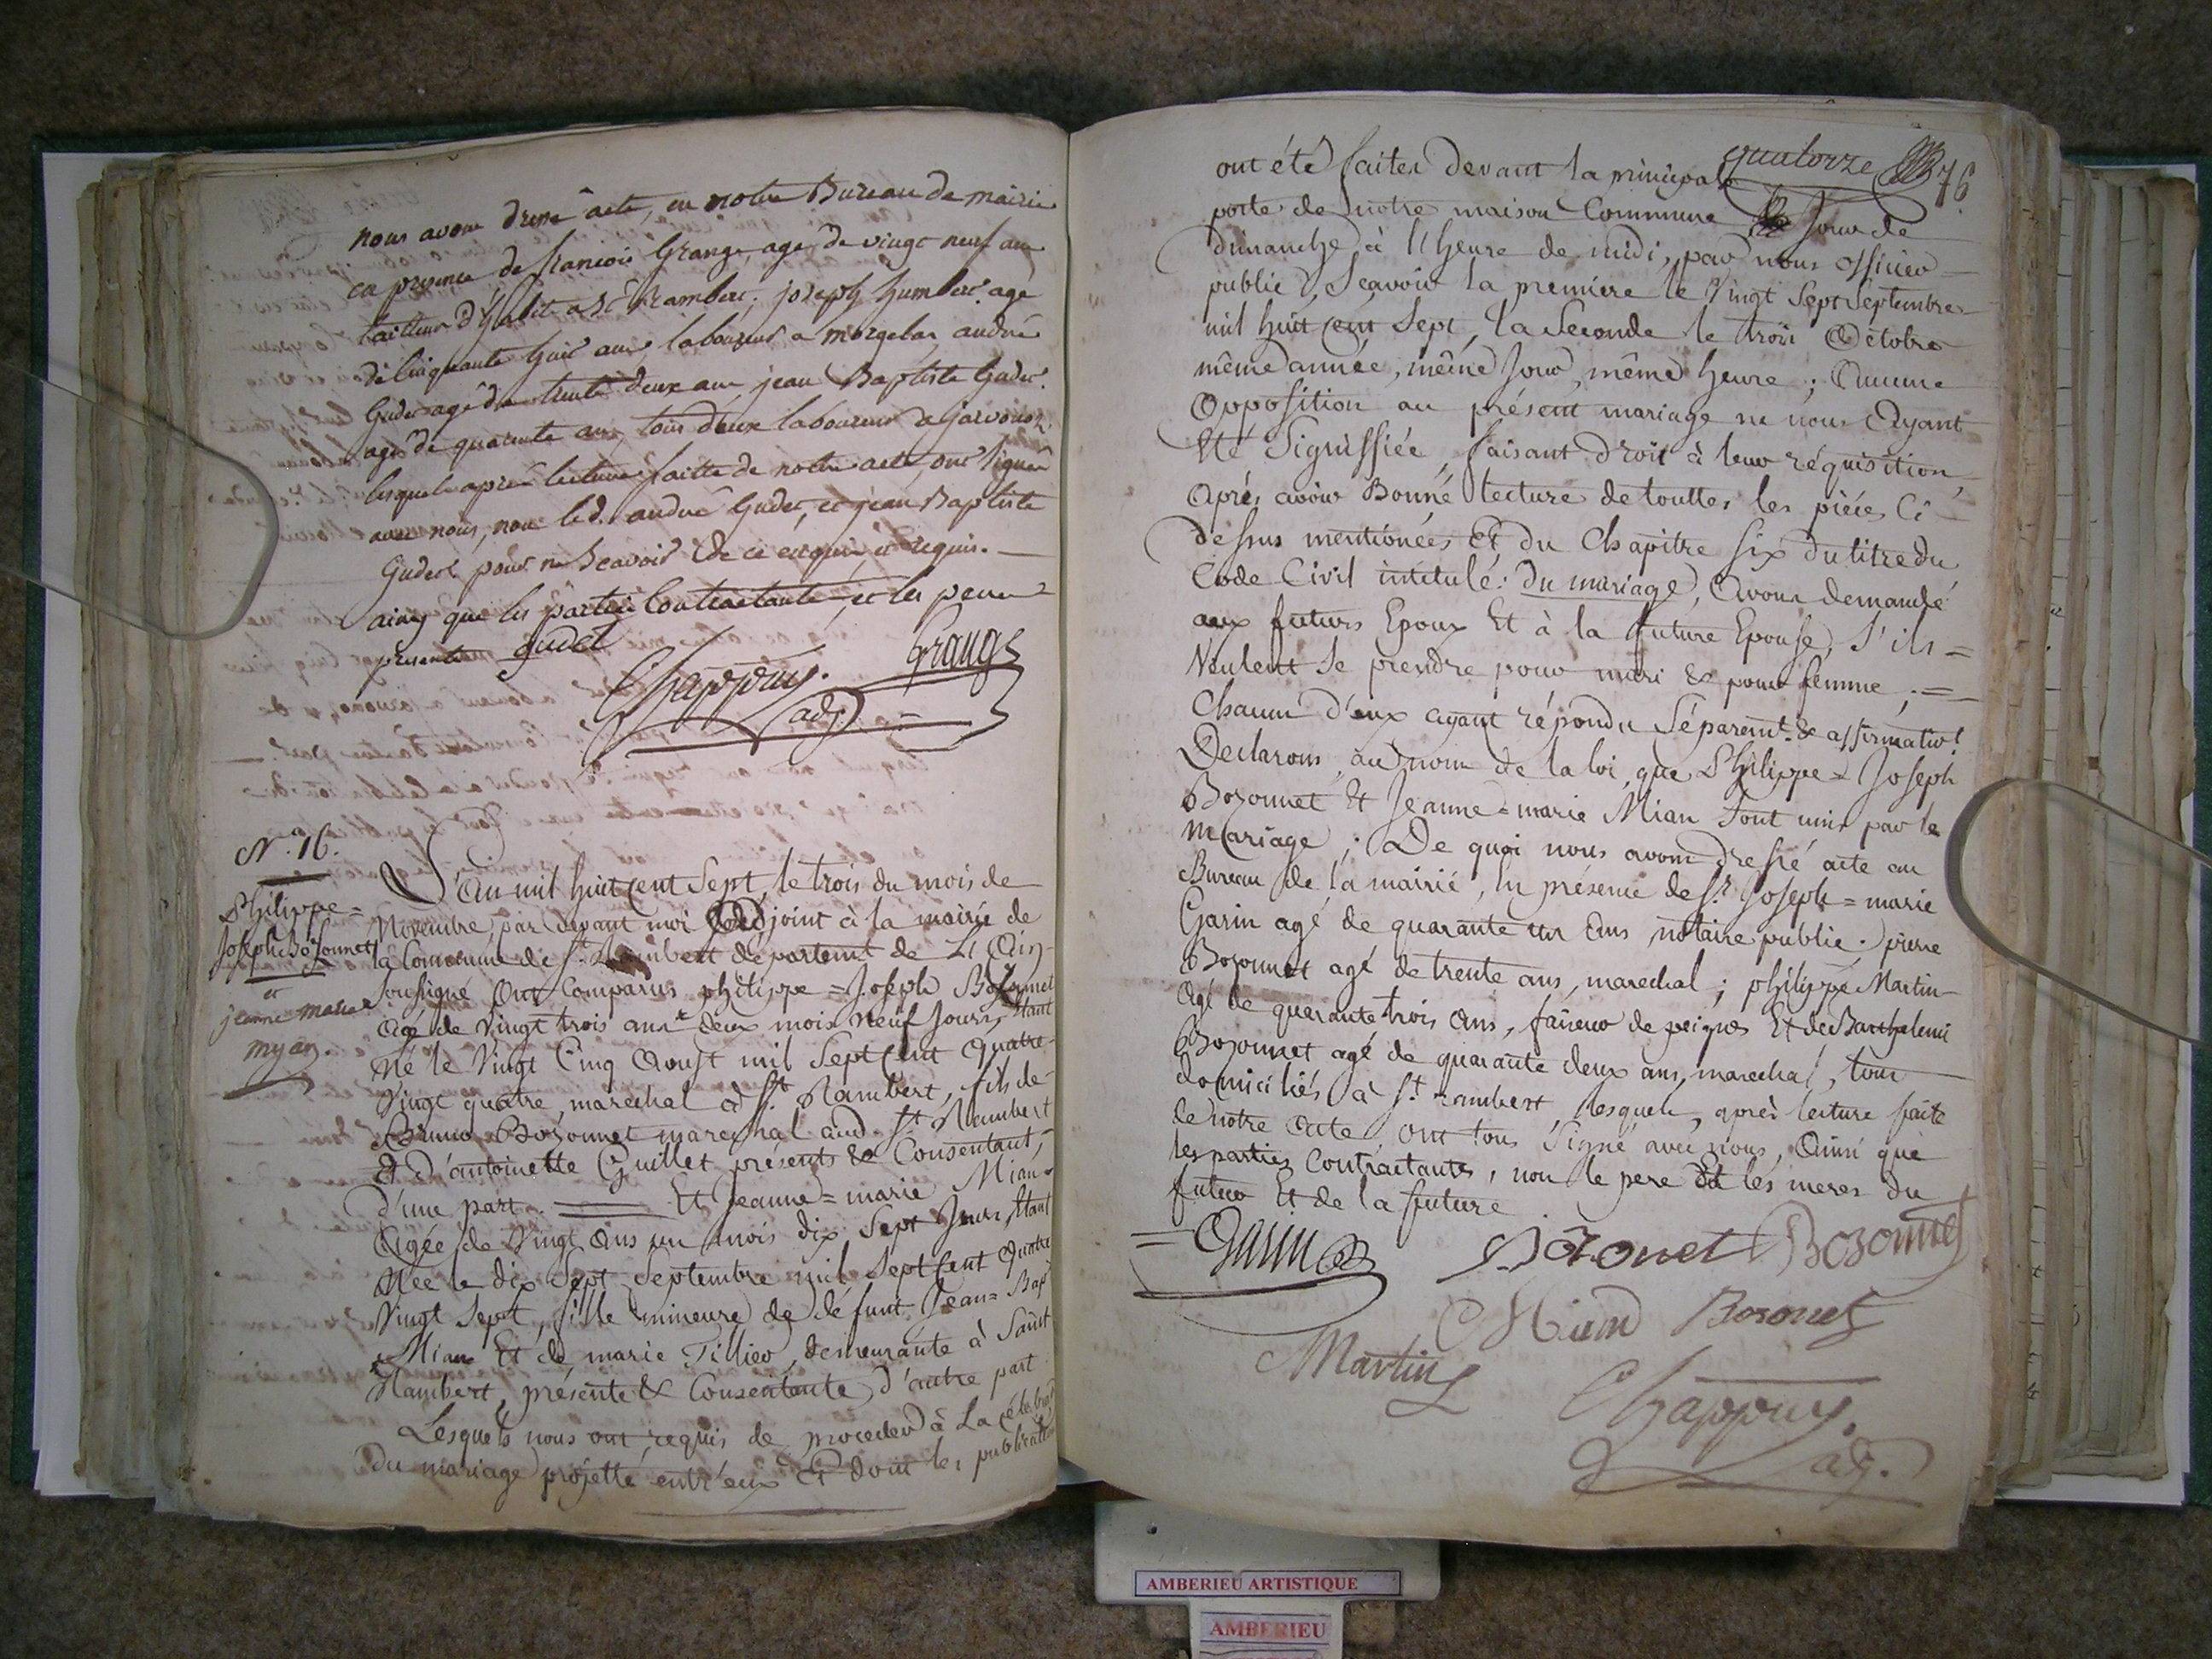 nous avons dressé acte, en notre Bureau de mairie
en presence de francois Grange, agé de vingt neuf ans
tailleur d'habit a St Rambert, joseph humbert agé
de Cinquante huit ans laboureur a morgelas, andré
Gudet agé de trente deux ans jean Baptiste Gudet
agé de quarante ans, tous deux laboureurs a Javornoz
lesquels après lecture faitte de notre acte, ont signé
avec nous, non led. andré Gudet, et jean Baptiste
Gudet pour ne Scavoir de ce enquis et requis.
ainsy que les parties Contractantes, et les peres
presents gudet
Grange
Chappuy.
adj.
N.° 16.
Philippe=
Joseph Bozonnet
et
jeanne marie
myan.
L'an mil huit cent Sept, le trois du mois de
Novembre, par devant moi adjoint à la mairie de
la Commune de St. Rambert departemt de L'Ain
soussigné Ont Comparus philippe=Joseph Bozonnet
agé de Vingt trois ans deux mois neuf Jours, Etant
né le Vingt Cinq Aoust mil Sept Cent Quatre
Vingt quatre, marechal à St. Rambert, fils de
Bruno Bozonnet marechal aud. St. Rambert
Et d'antoinette Guillet présents & Consentant,
d'une part. Et Jeanne=marie Mian
Agée de Vingt Ans un mois dix Sept Jours, Etant
Née le dix Sept Septembre mil Sept Cent Quatre
Vingt Sept, fille mineure de défunt Jean=Bapt
Mian Et de marie Tillier, demeurante à Saint
Rambert, présente & Consentante d'autre part
Lesquels nous ont requis de proceder à La célébrat
du mariage projetté entr'eux Et dont les publications
quatorze 76
ont été faites devant la principale
porte de notre maison Commune Jour de
dimanche à l'heure de midi, par nous officier
public, Scavoir la premiere le Vingt Sept Septembre
mil huit cent Sept, la Seconde le trois Octobre
même année, même Jour, même heure; Aucune
Opposition au présent mariage ne nous Ayant
été Signiffiée, faisant droit à leur réquisition,
Après avoir Donné lecture de touttes les pièces Ci
dessus mentionées Et du Chapitre Six du titre du
Code Civil intitulé: du mariage, Avons demandé
aux futurs Epoux Et à la future Epouse, S'ils=
Veulent Se prendre pour mari & pour femme;=
Chacun d'eux ayant répondu Séparemt. & affirmativt.
Declarons au nom de la loi, que Philippe=Joseph
Bozonnet Et Jeanne=marie Mian Sont unis par le
Mariage; De quoi nous avons dressé acte au
Bureau de la mairie, En présence de Sr. Joseph=marie
Garin agé de quarante un Ans, notaire public; pierre
Bozonnet agé de trente ans, marechal; philippe Martin
Agé de quarante trois Ans, faiseur de peignes Et de Barthelemi
Bozonnet agé de quarante deux ans, marechal, tous
domiciliés à St. rambert, lesquels, après lecture faite
de notre Acte, ont tous Signé avec nous, Ainsi que
les parties Contractantes, non le pere Et les meres du
futur Et de la future
Garin
Bozonet
Bozonnet
Miand
Bozonet
Martin
Chappuy.
adj.
AMBERIEU ARTISTIQUE
AMBERIEU